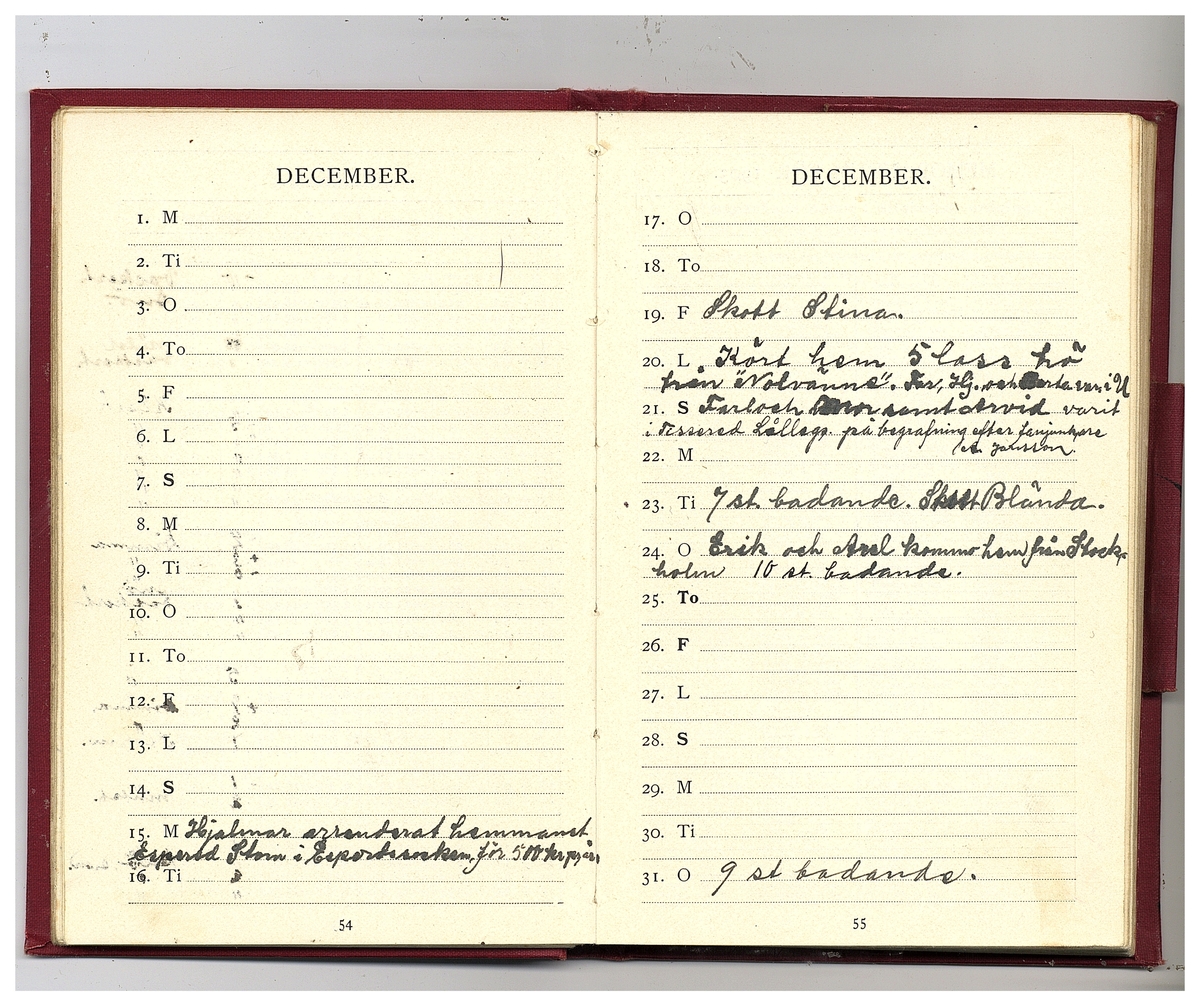 DECEMBER.
1. M
2. Ti
3. O
4. To
5. F
6. L
7. S
8. M
9. Ti
10. O
11. To
12. F
13. L
14. S
15. M Hjalmar arrenderat hemmanet
Espered Storn i Esperedssocken för 500 kr pr år.
16. Ti
54
DECEMBER.
17. O
18. To
19. F Skott Stina.
20. L Kört hem 5 lass hö
från "Nolvänne". Far, Hj. och Berta var i U
21. S Far och Mor samt Arvid varit
i Tissered på begrafning efter fanjunkare
A. Jansson.
22. M
23. Ti 7 st. badande. Skott Blända.
24. O Erik och Axel kommo hem från Stock-
holm 10 st. badande.
25. To
26. F
27. L
28. S
29. M
30. Ti
31. O 9 st badande.
55